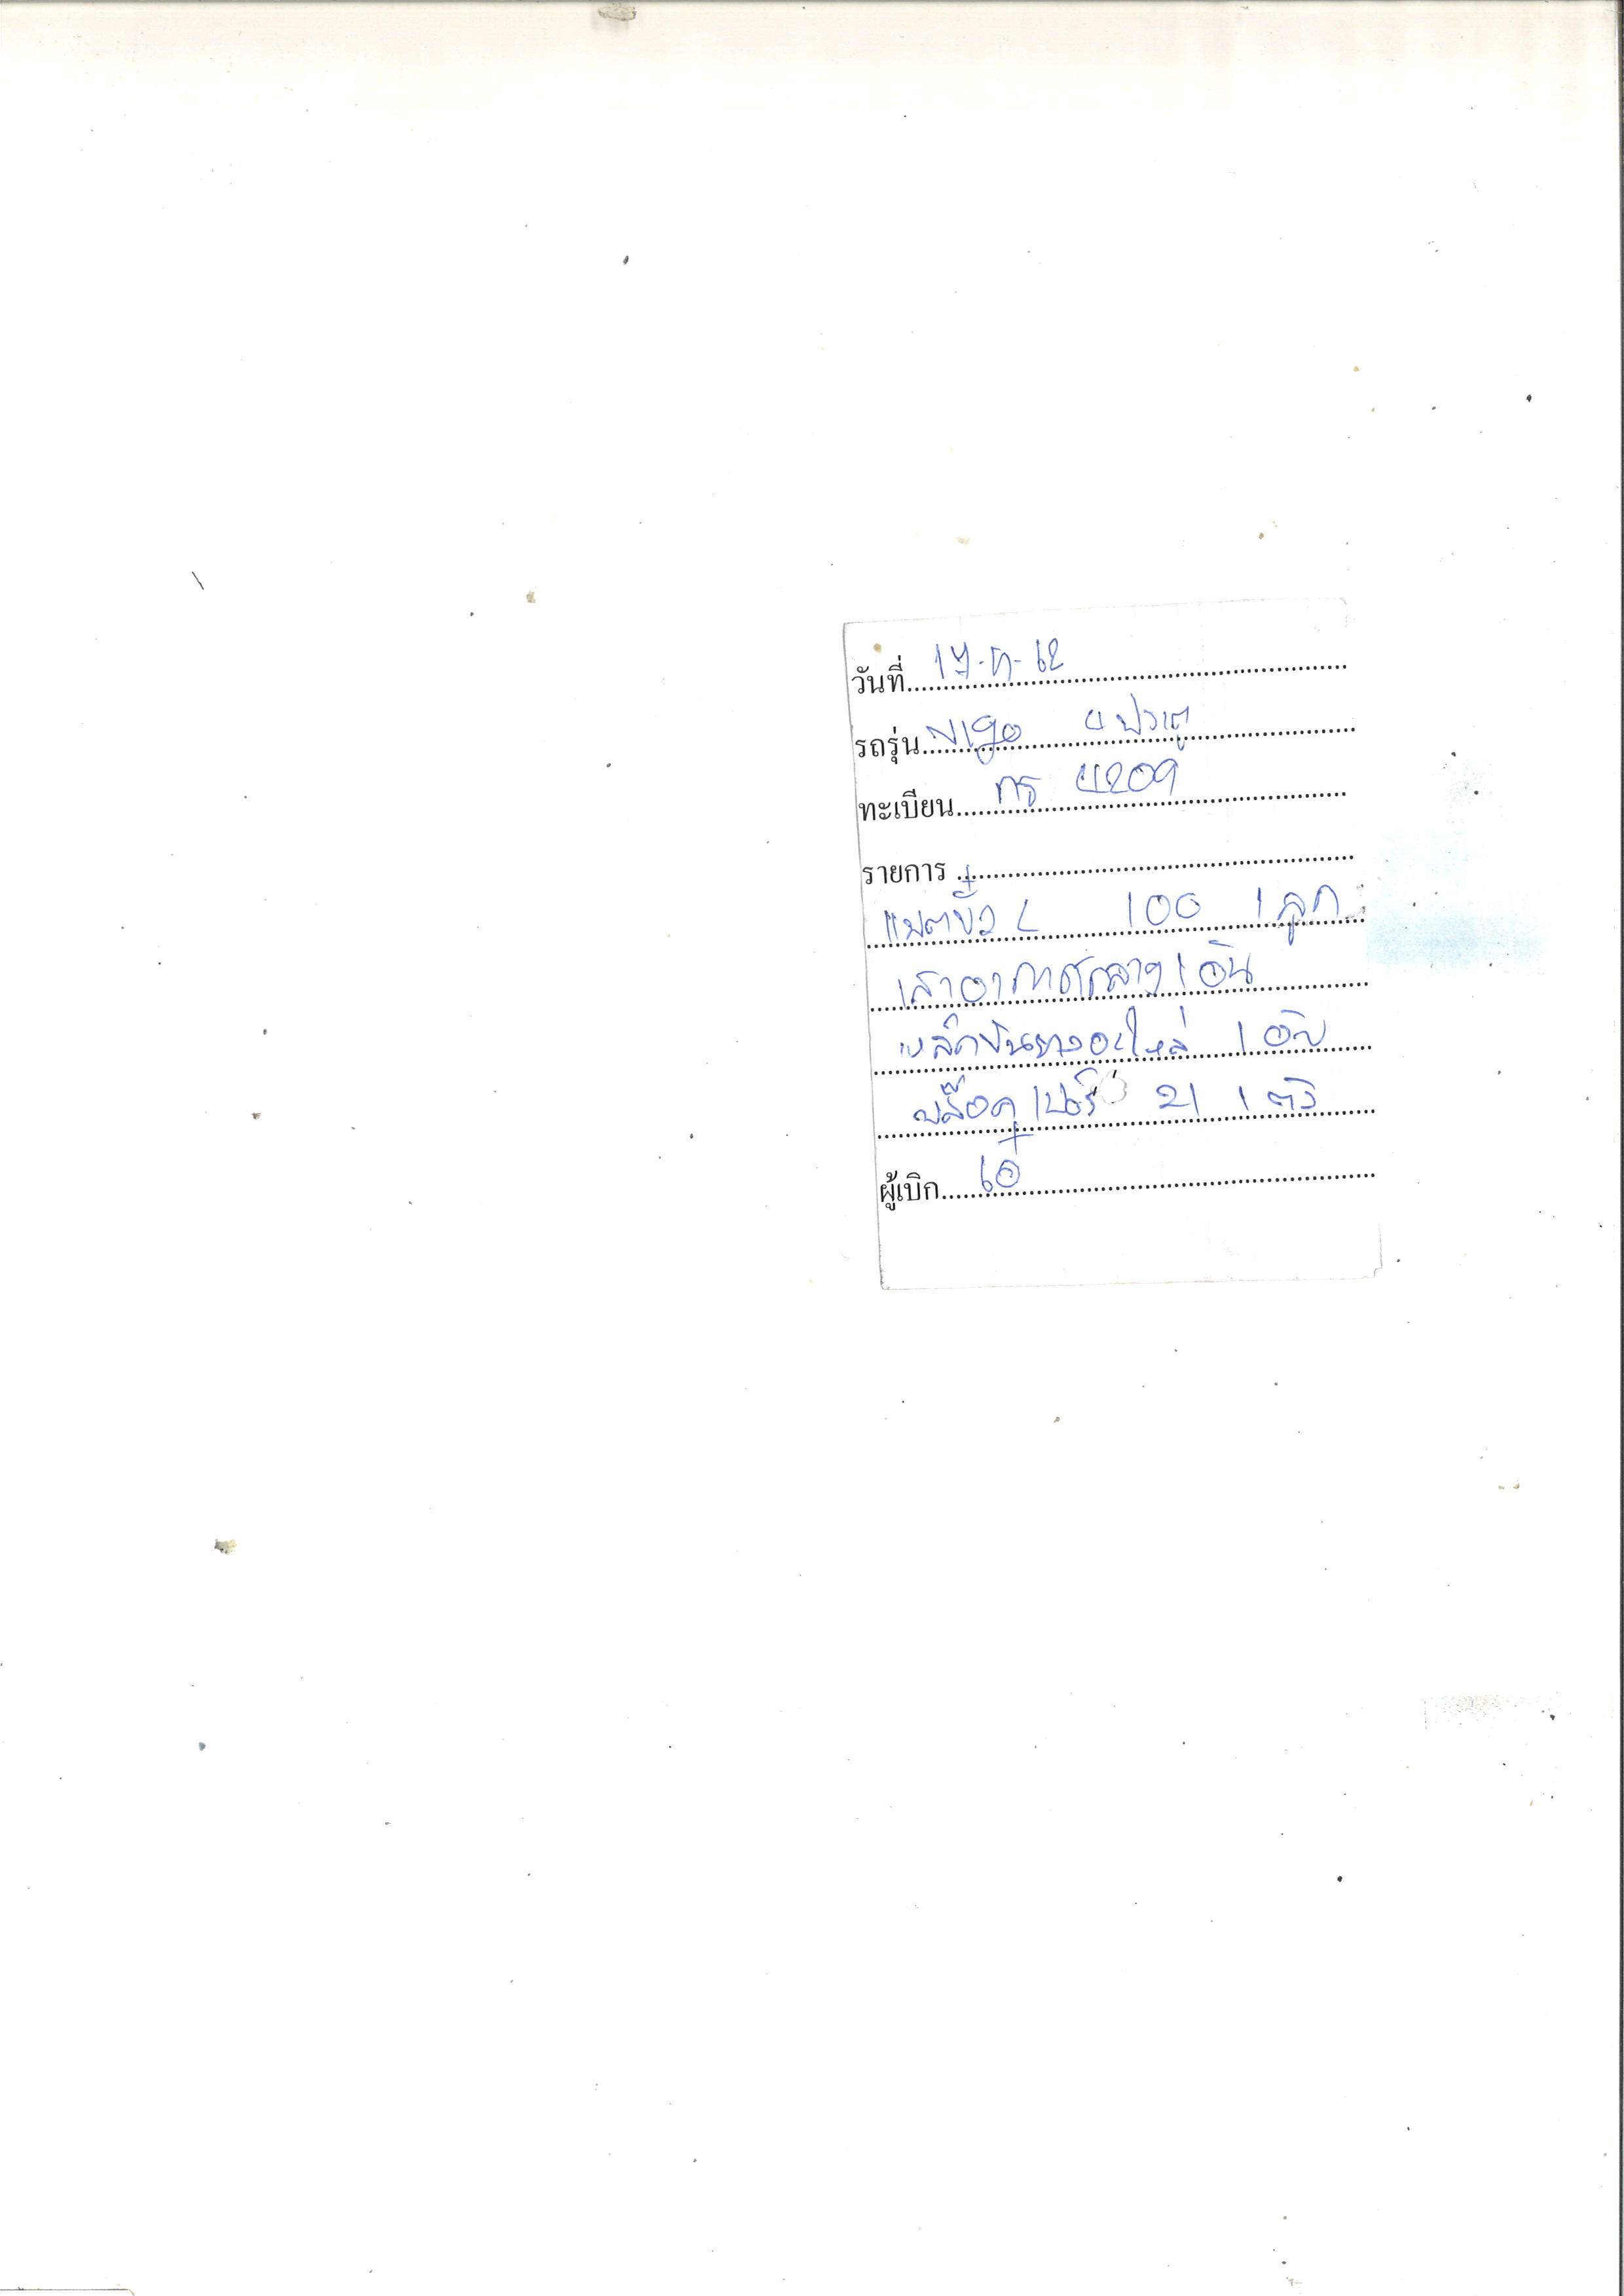 วันที่ 17-ก-62
รถรุ่น Vigo 4 ประตู
ทะเบียน กธ 4209
รายการ
แบตขั้ว L 100 1 ลูก
เสาอากาศกลาง 1 อัน
เหล็กขันยางอะไหล่ 1 อัน
บล๊อค เบอร์ 21 1 ตัว
ผู้เบิก เอ๋